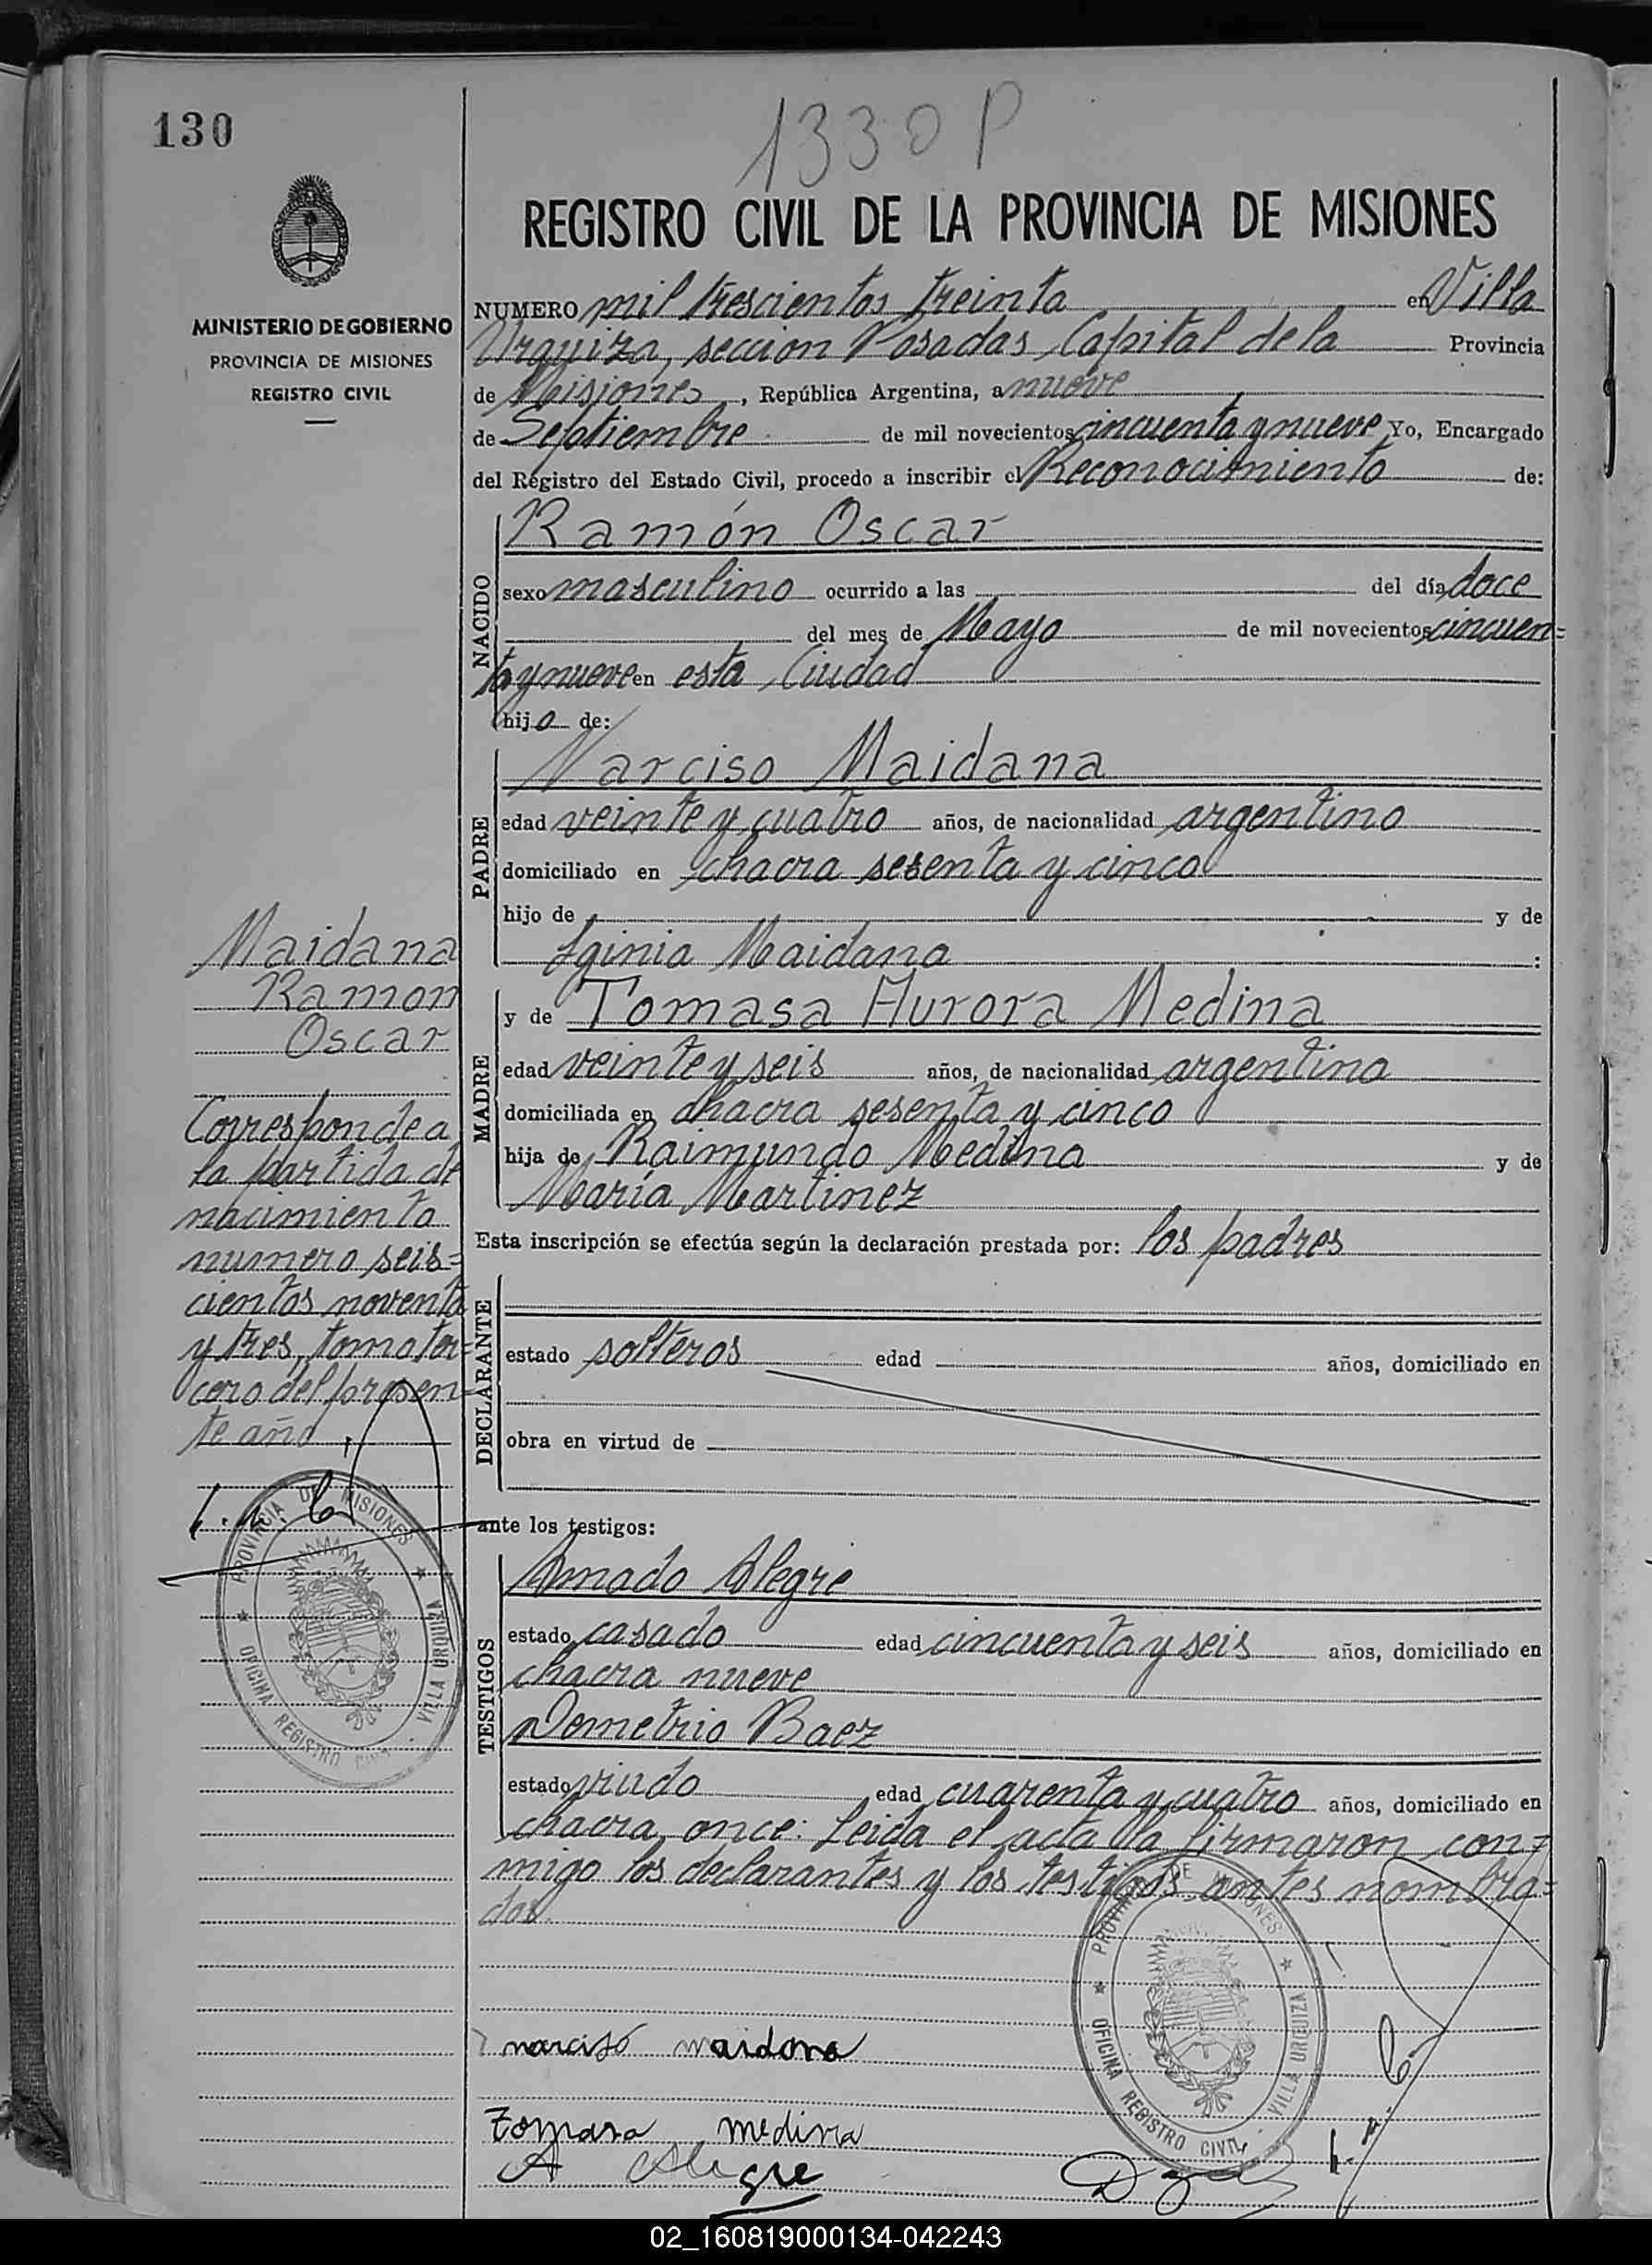 130
1330 P
REGISTRO CIVIL DE LA PROVINCIA DE MISIONES
MINISTERIO DE GOBIERNO
PROVINCIA DE MISIONES
REGISTRO CIVIL
NUMERO mil trescientos treinta en Villa
Urquiza, sección Posadas, Capital de la Provincia
de Misiones, República Argentina, a nueve
de Septiembre de mil novecientos cincuenta y nueve Yo, Encargado
del Registro del Estado Civil, procedo a inscribir el Reconocimiento de:
NACIDO
Ramón Oscar
sexo masculino ocurrido a las del día doce
del mes de Mayo de mil novecientos cincuen=
ta y nueve en esta Ciudad
hijo de:
PADRE
Narciso Maidana
edad veinte y cuatro años, de nacionalidad argentino
domiciliado en chacra sesenta y cinco
hijo de y de
Iginia Maidana :
MADRE
y de Tomasa Aurora Medina
edad veinte y seis años, de nacionalidad argentina
domiciliada en chacra sesenta y cinco
hija de Raimundo Medina y de
María Martinez
Esta inscripción se efectúa según la declaración prestada por: los padres
DECLARANTE
estado solteros edad años, domiciliado en
obra en virtud de
ante los testigos:
TESTIGOS
Amado Alegre
estado casado edad cincuenta y seis años, domiciliado en
chacra nueve
Demetrio Baez
estado viudo edad cuarenta y cuatro años, domiciliado en
chacra once: Leida el acta la firmaron con=
migo los declarantes y los testigos antes nombra=
dos.
narciso maidana
tomasa medina
A Alegre
Maidana
Ramon
Oscar
Corresponde a
la partida de
nacimiento
numero seis=
cientos noventa
y tres, tomo ter=
cero del presen=
te año
PROVINCIA DE MISIONES
OFICINA REGISTRO CIVIL VILLA URQUIZA
PROVINCIA DE MISIONES
OFICINA REGISTRO CIVIL VILLA URQUIZA
02_160819000134-042243